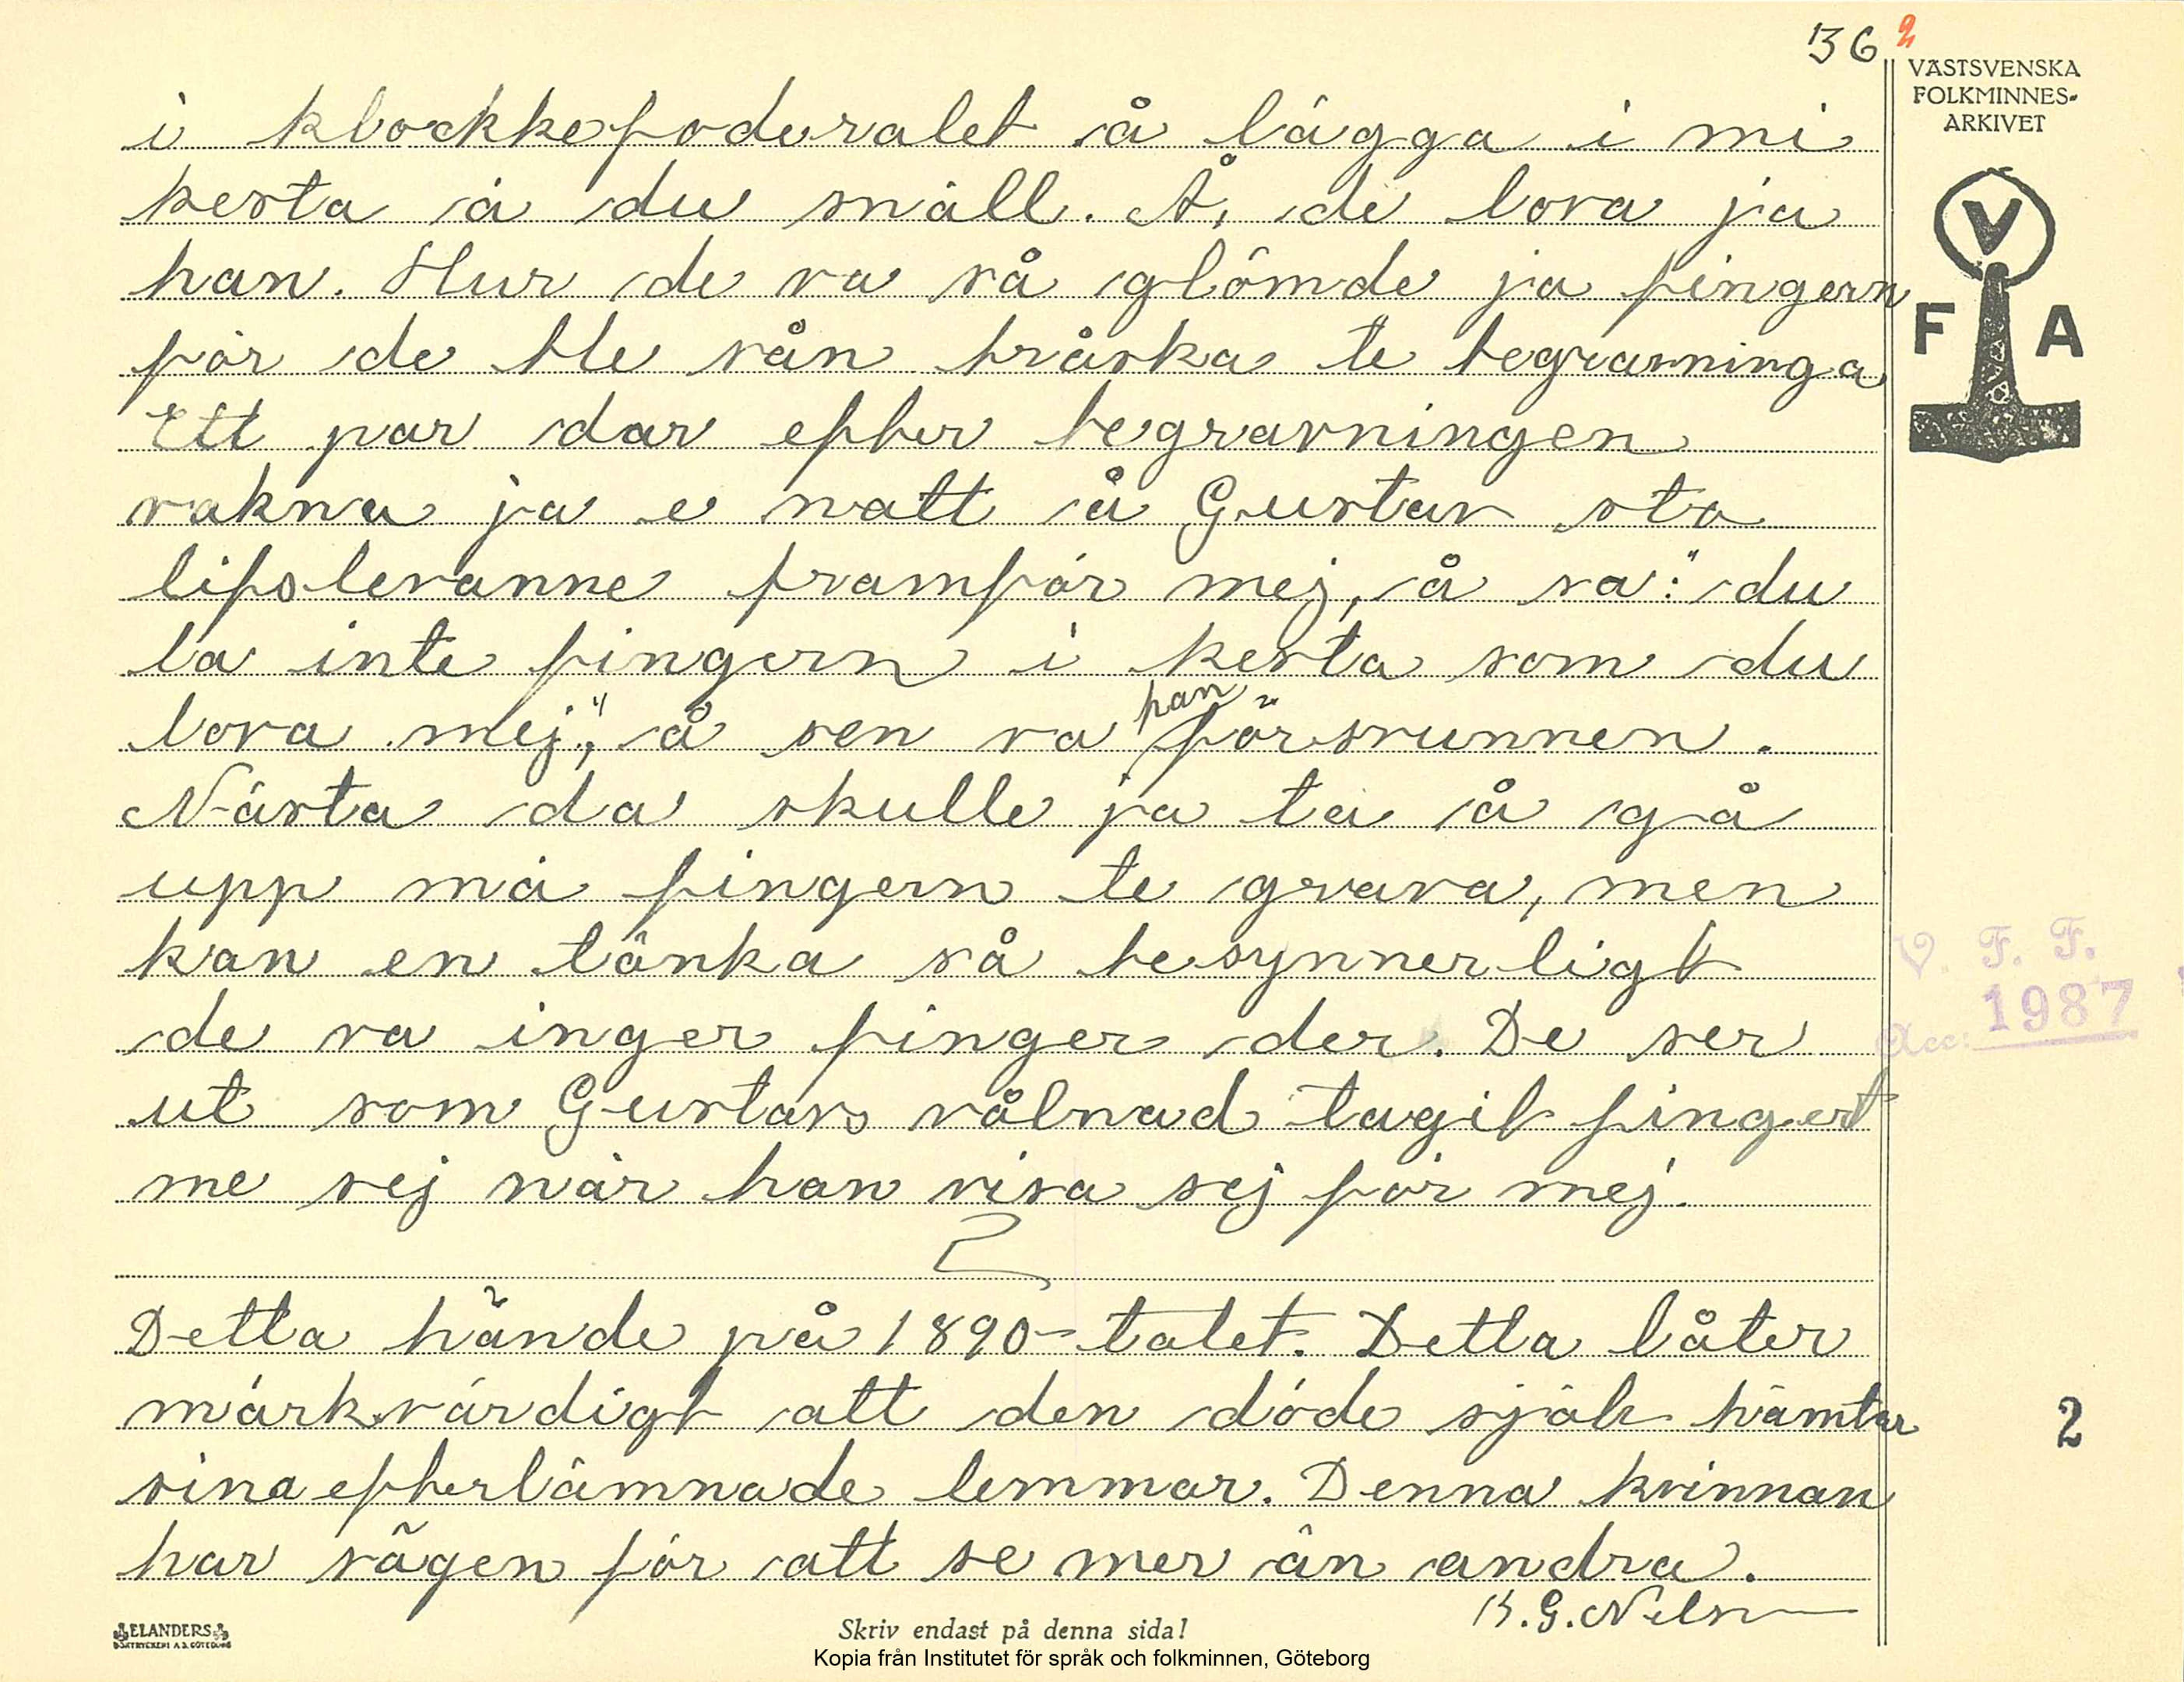 36 2
VÄSTSVENSKA
FOLKMINNES-
ARKIVET
V
F A
i klockkefoderalet å lägga i mi
kesta ä du snäll. Å, de lova ja
han. Hur de va så glömde ja fingern
för de ble sån bråska te begravninga
Ett par dar efter begravningen
vakna ja e natt å Gustav sto
lifslevanne framför mej, å sa: "du
la inte fingern i kesta som du
lova mej", å sen va han försvunnen.
Nästa da skulle ja ta å gå
upp mä fingern te grava, men
kan en tänka så besynnerligt
de va inger finger der. De ser
ut som Gustavs vålnad tagit fingert
me sej när han visa sej för mej.
Detta hände på 1890-talet. Detta låter
märkvärdigt att den döde själv hämtar
sina efterlämnade lemmar. Denna kvinnan
har sägen för att se mer än andra.
K.G. Nelsn
V. F. F.
Acc: 1987
2
ELANDERS
BOKTRYCKERI A.B. GÖTEBORG
Skriv endast på denna sida!
Kopia från Institutet för språk och folkminnen, Göteborg